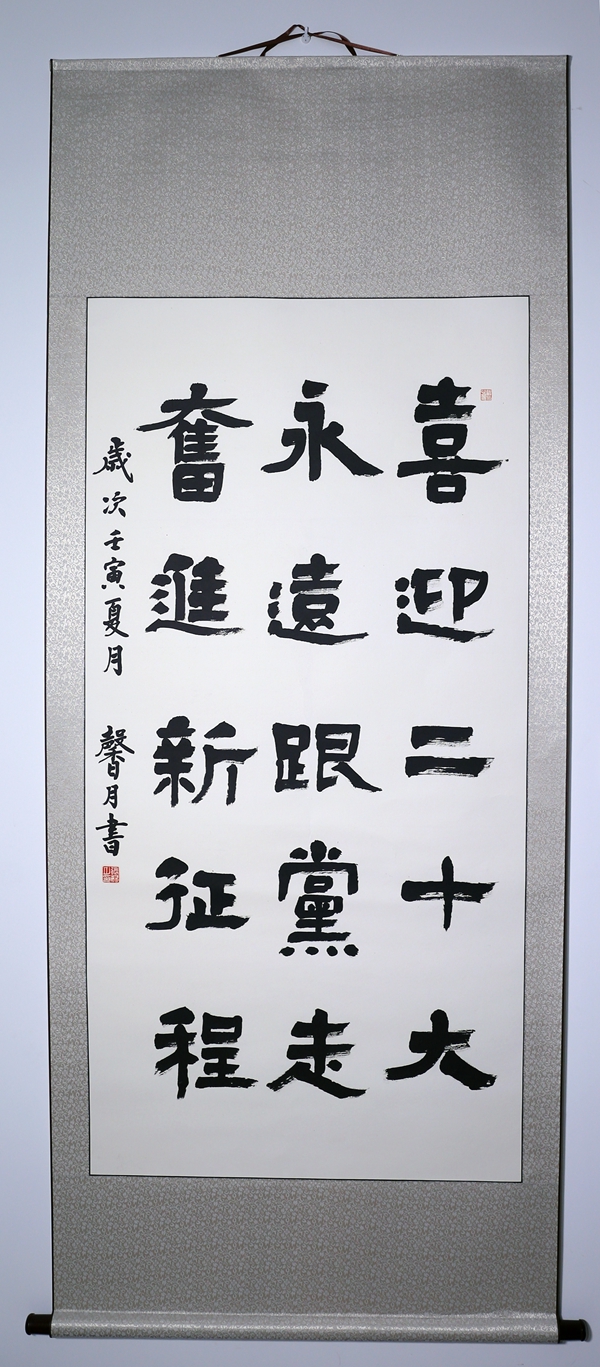 喜迎二十大
永遠跟黨走
奮進新征程
歲次壬寅夏月 馨月書